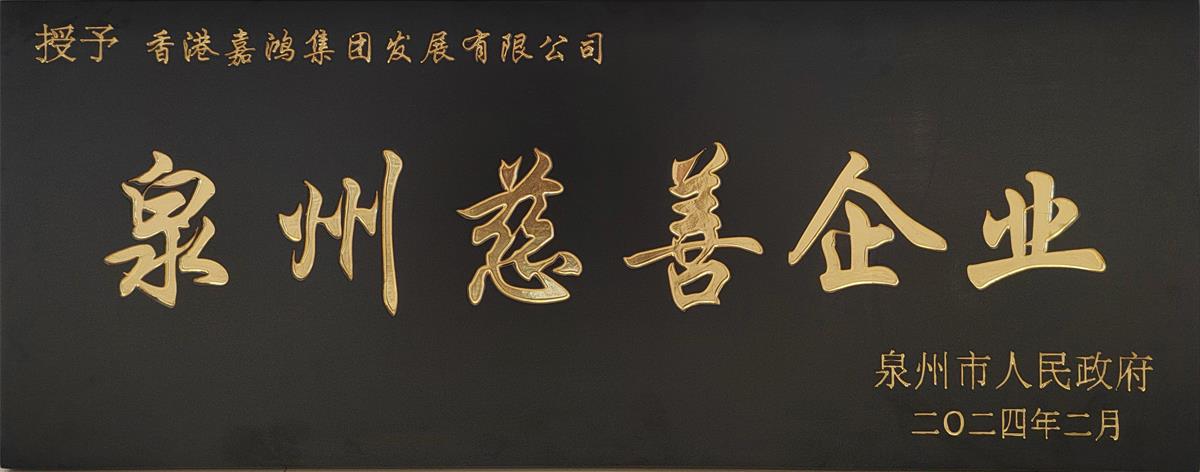 授予 香港嘉鸿集团发展有限公司
泉州慈善企业
泉州市人民政府
二〇二四年二月